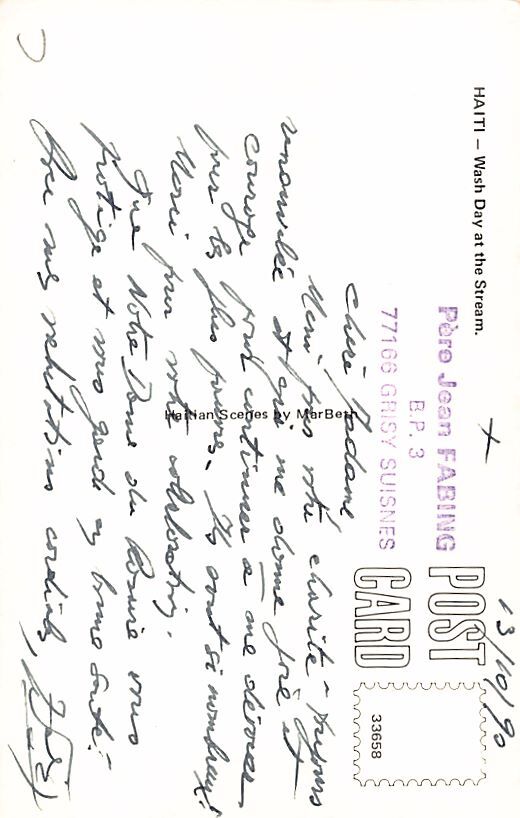 HAITI – Wash Day at the Stream.
Père Jean FABING
B.P. 3
77166 GRISY SUISNES
+
13/10/90
POST
CARD
33658
Haitian Scenes by MarBeth
Chère Madame
Merci pour votre charité - toujours
renouvelée et qui me donne joie et
courage pour continuer à me dévouer
pour les plus pauvres - Ils sont si nombreux!
Merci pour votre collaboration.
Que Notre Dame du Rosaire vous
protège et vous garde en bonne santé!
Avec mes salutations cordiales,